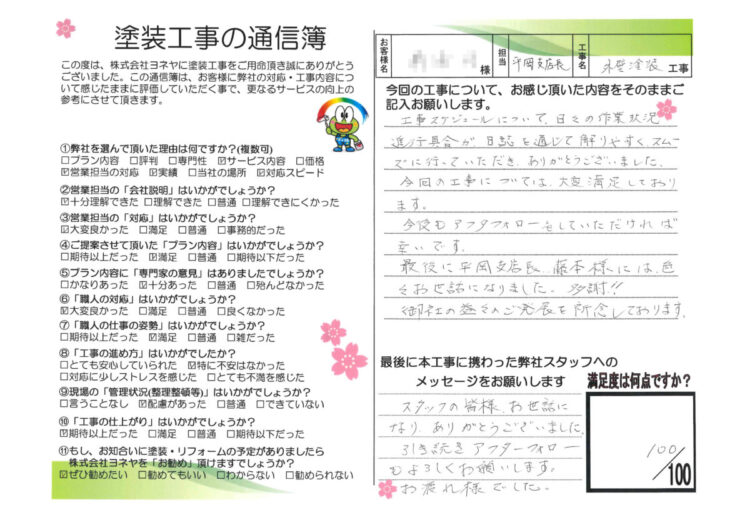 塗装工事の通信簿
この度は、株式会社ヨネヤに塗装工事をご用命頂き誠にありがとう
ございました。この通信簿は、お客様に弊社の対応・工事内容につ
いて感じたままに評価していただく事で、更なるサービスの向上の
参考にさせて頂きます。
①弊社を選んで頂いた理由は何ですか?(複数可)
□プラン内容 □評判 □専門性 ☑サービス内容 □価格
☑営業担当の対応 ☑実績 □当社の場所 ☑対応スピード
②営業担当の「会社説明」はいかがでしょうか?
☑十分理解できた □理解できた □普通 □理解できにくかった
③営業担当の「対応」はいかがでしょうか?
☑大変良かった □満足 □普通 □事務的だった
④ご提案させて頂いた「プラン内容」はいかがでしょうか?
□期待以上だった ☑満足 □普通 □期待以下だった
⑤プラン内容に「専門家の意見」はありましたでしょうか?
□かなりあった ☑十分あった □普通 □殆んどなかった
⑥「職人の対応」はいかがでしょうか?
☑大変良かった □満足 □普通 □良くなかった
⑦「職人の仕事の姿勢」はいかがでしょうか?
□期待以上だった ☑満足 □普通 □雑だった
⑧「工事の進め方」はいかがでしたか?
□とても安心していられた ☑特に不安はなかった
□対応に少しストレスを感じた □とても不満を感じた
⑨現場の「管理状況(整理整頓等)」はいかがでしょうか?
□言うことなし ☑配慮があった □普通 □できていない
⑩「工事の仕上がり」はいかがでしょうか?
☑期待以上だった □満足 □普通 □期待以下だった
⑪もし、お知合いに塗装・リフォームの予定がありましたら
株式会社ヨネヤを「お勧め」頂けますでしょうか?
☑ぜひ勧めたい □勧めてもいい □わからない □勧められない
お客様名 様 担当 平岡支店長 工事名 外壁塗装 工事
今回の工事について、お感じ頂いた内容をそのままご
記入お願いします。
工事スケジュールについて、日々の作業状況
進行具合が日誌を通じて解りやすく、スムー
ズに行っていただき、ありがとうございました。
今回の工事については、大変満足しており
ます。
今後もアフタフォローをしていただければ
幸いです。
最後に平岡支店長、藤本様には、色
々お世話になりました。多謝!!
御社の益々のご発展を祈念しております。
最後に本工事に携わった弊社スタッフへの
メッセージをお願いします
スタッフの皆様、お世話に
なり、ありがとうございました。
引き続きアフターフォロー
もよろしくお願いします。
お疲れ様でした。
満足度は何点ですか?
100
/100